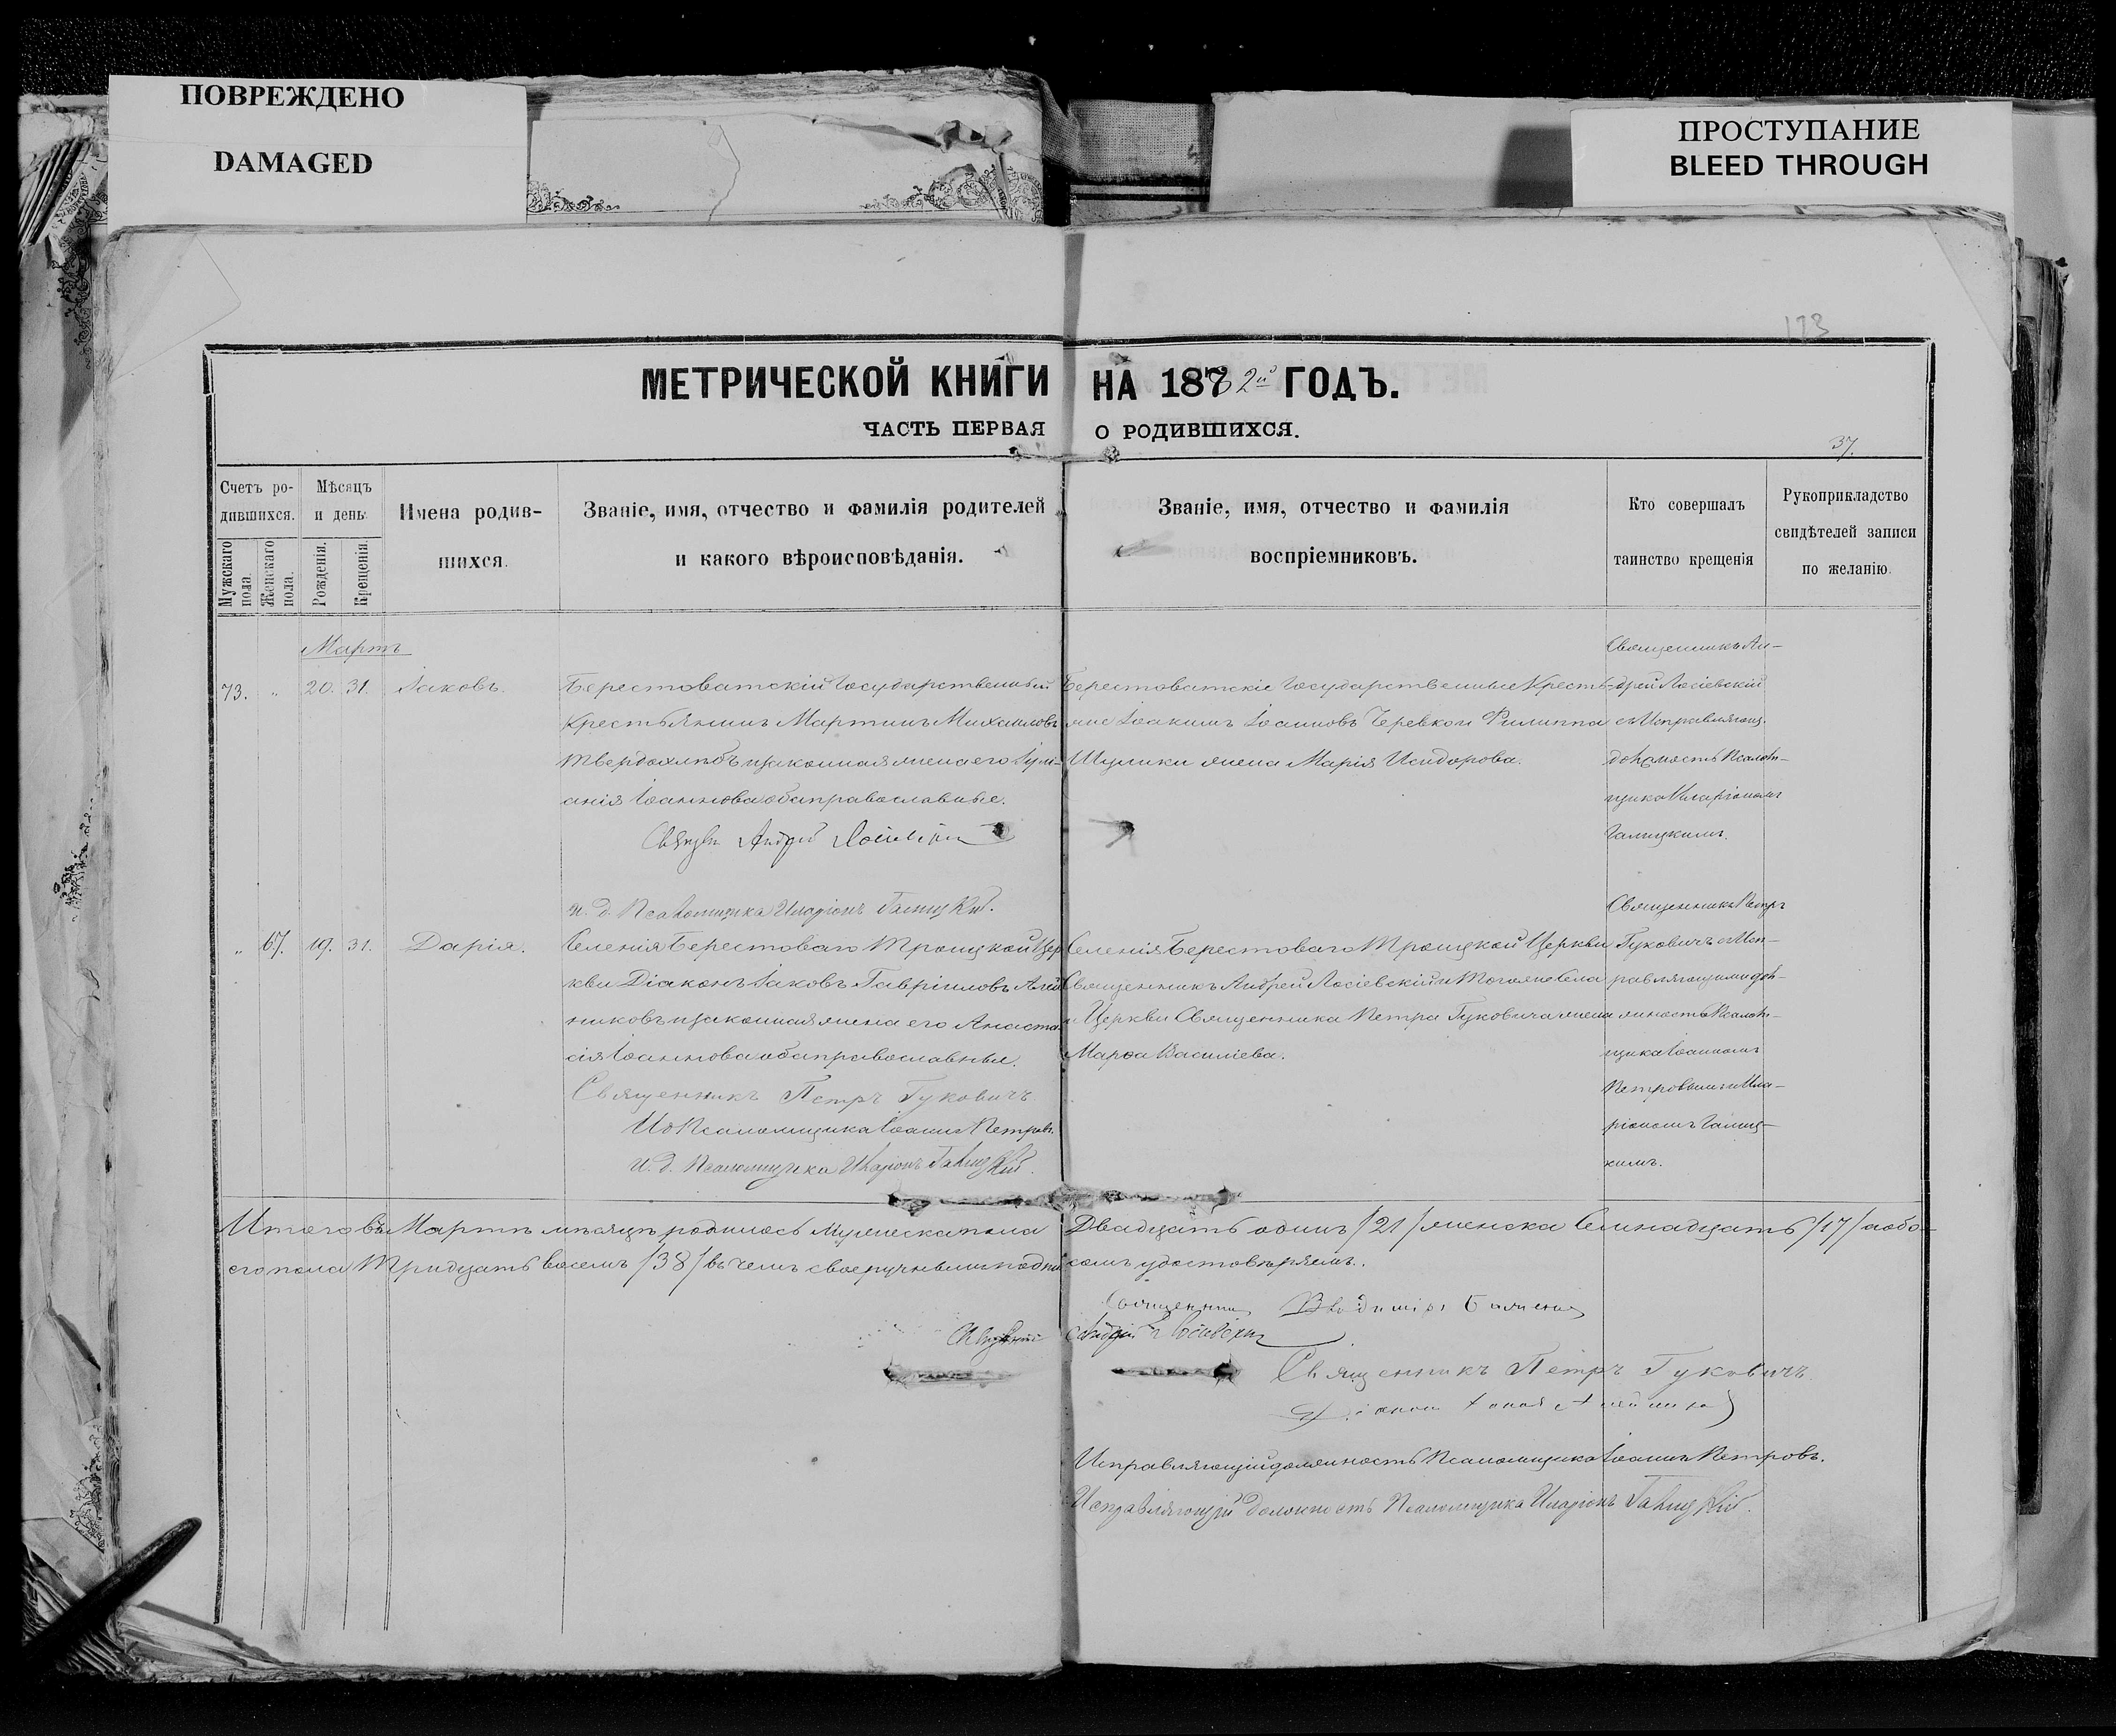 ПОВРЕЖДЕНО
DAMAGED
ПРОСТУПАНИЕ
BLEED THROUGH
173
МЕТРИЧЕСКОЙ КНИГИ НА 1882й ГОДЪ.
ЧАСТЬ ПЕРВАЯ О РОДИВШИХСЯ.
37.
Счетъ ро-
дившихся.
Мужскаго пола.
Женскаго пола.
Мѣсяцъ
и день.
Рожденія.
Крещенія.
Имена родив-
шихся.
Званіе, имя, отчество и фамилія родителей
и какого вѣроисповѣданія.
Званіе, имя, отчество и фамилія
воспріемниковъ.
Кто совершалъ
таинство крещенія
Рукоприкладство
свидѣтелей записи
по желанію.
Мартъ
73. „ 20. 31. Іаковъ.
Берестоватскій Государственный
Крестьянинъ Мартинъ Михаиловъ
Твердохлѣбъ и законная жена его Іули-
анія Іоаннова оба православные.
Андрей Лосіевскій
и. д. Псаломщика Иларіонъ Галицкій.
Берестоватскіе Государственные Кресть-
яне Іоакимъ Іоанновъ Черевко и Филиппа
Шулики жена Марія Исидорова.
Священникъ Ан-
дрей Лосіевскій
съ Исправляющ.
должность Псалом-
щика Иларіономъ
Галицкимъ.
„ 67. 19. 31. Дарія.
Селенія Берестоваго Троицкой Цер
кви Діаконъ Іаковъ Гавріиловъ Алей
никовъ и законная жена его Анаста
сія Іоаннова оба православные.
Священникъ Петръ Гуковичъ
И д Псаломщика Іоаннъ Петровъ.
и. д. Псаломщика Иларіонъ Галицкій.
Селенія Берестоваго Троицкой Церкви
Священникъ Андрей Лосіевскій и Тогоже Села
и Церкви Священника Петра Гуковича жена
Марѳа Василіева.
Священникъ Петръ
Гуковичъ съ Исп-
равляющими дол-
жность Псалом-
щика Іоанномъ
Петровымъ и Ила-
ріономъ Галиц-
кимъ.
Итого въ Мартѣ мѣсяцѣ родилось Мужеска пола Двадцать одинъ /21/ женска Семнадцать /17/ а обо-
его пола Тридцать восемъ /38/ въ чемъ своеручнымъ подпи сомъ удостовѣряемъ.
Священникъ Владиміръ
Андрей Лосіевскій
Священникъ Петръ Гуковичъ.
Діаконъ Іаковъ Алейниковъ
Исправляющій должность Псаломщика Іоаннъ Петровъ.
Исправляющій должность Псаломщика Иларіонъ Галицкій.